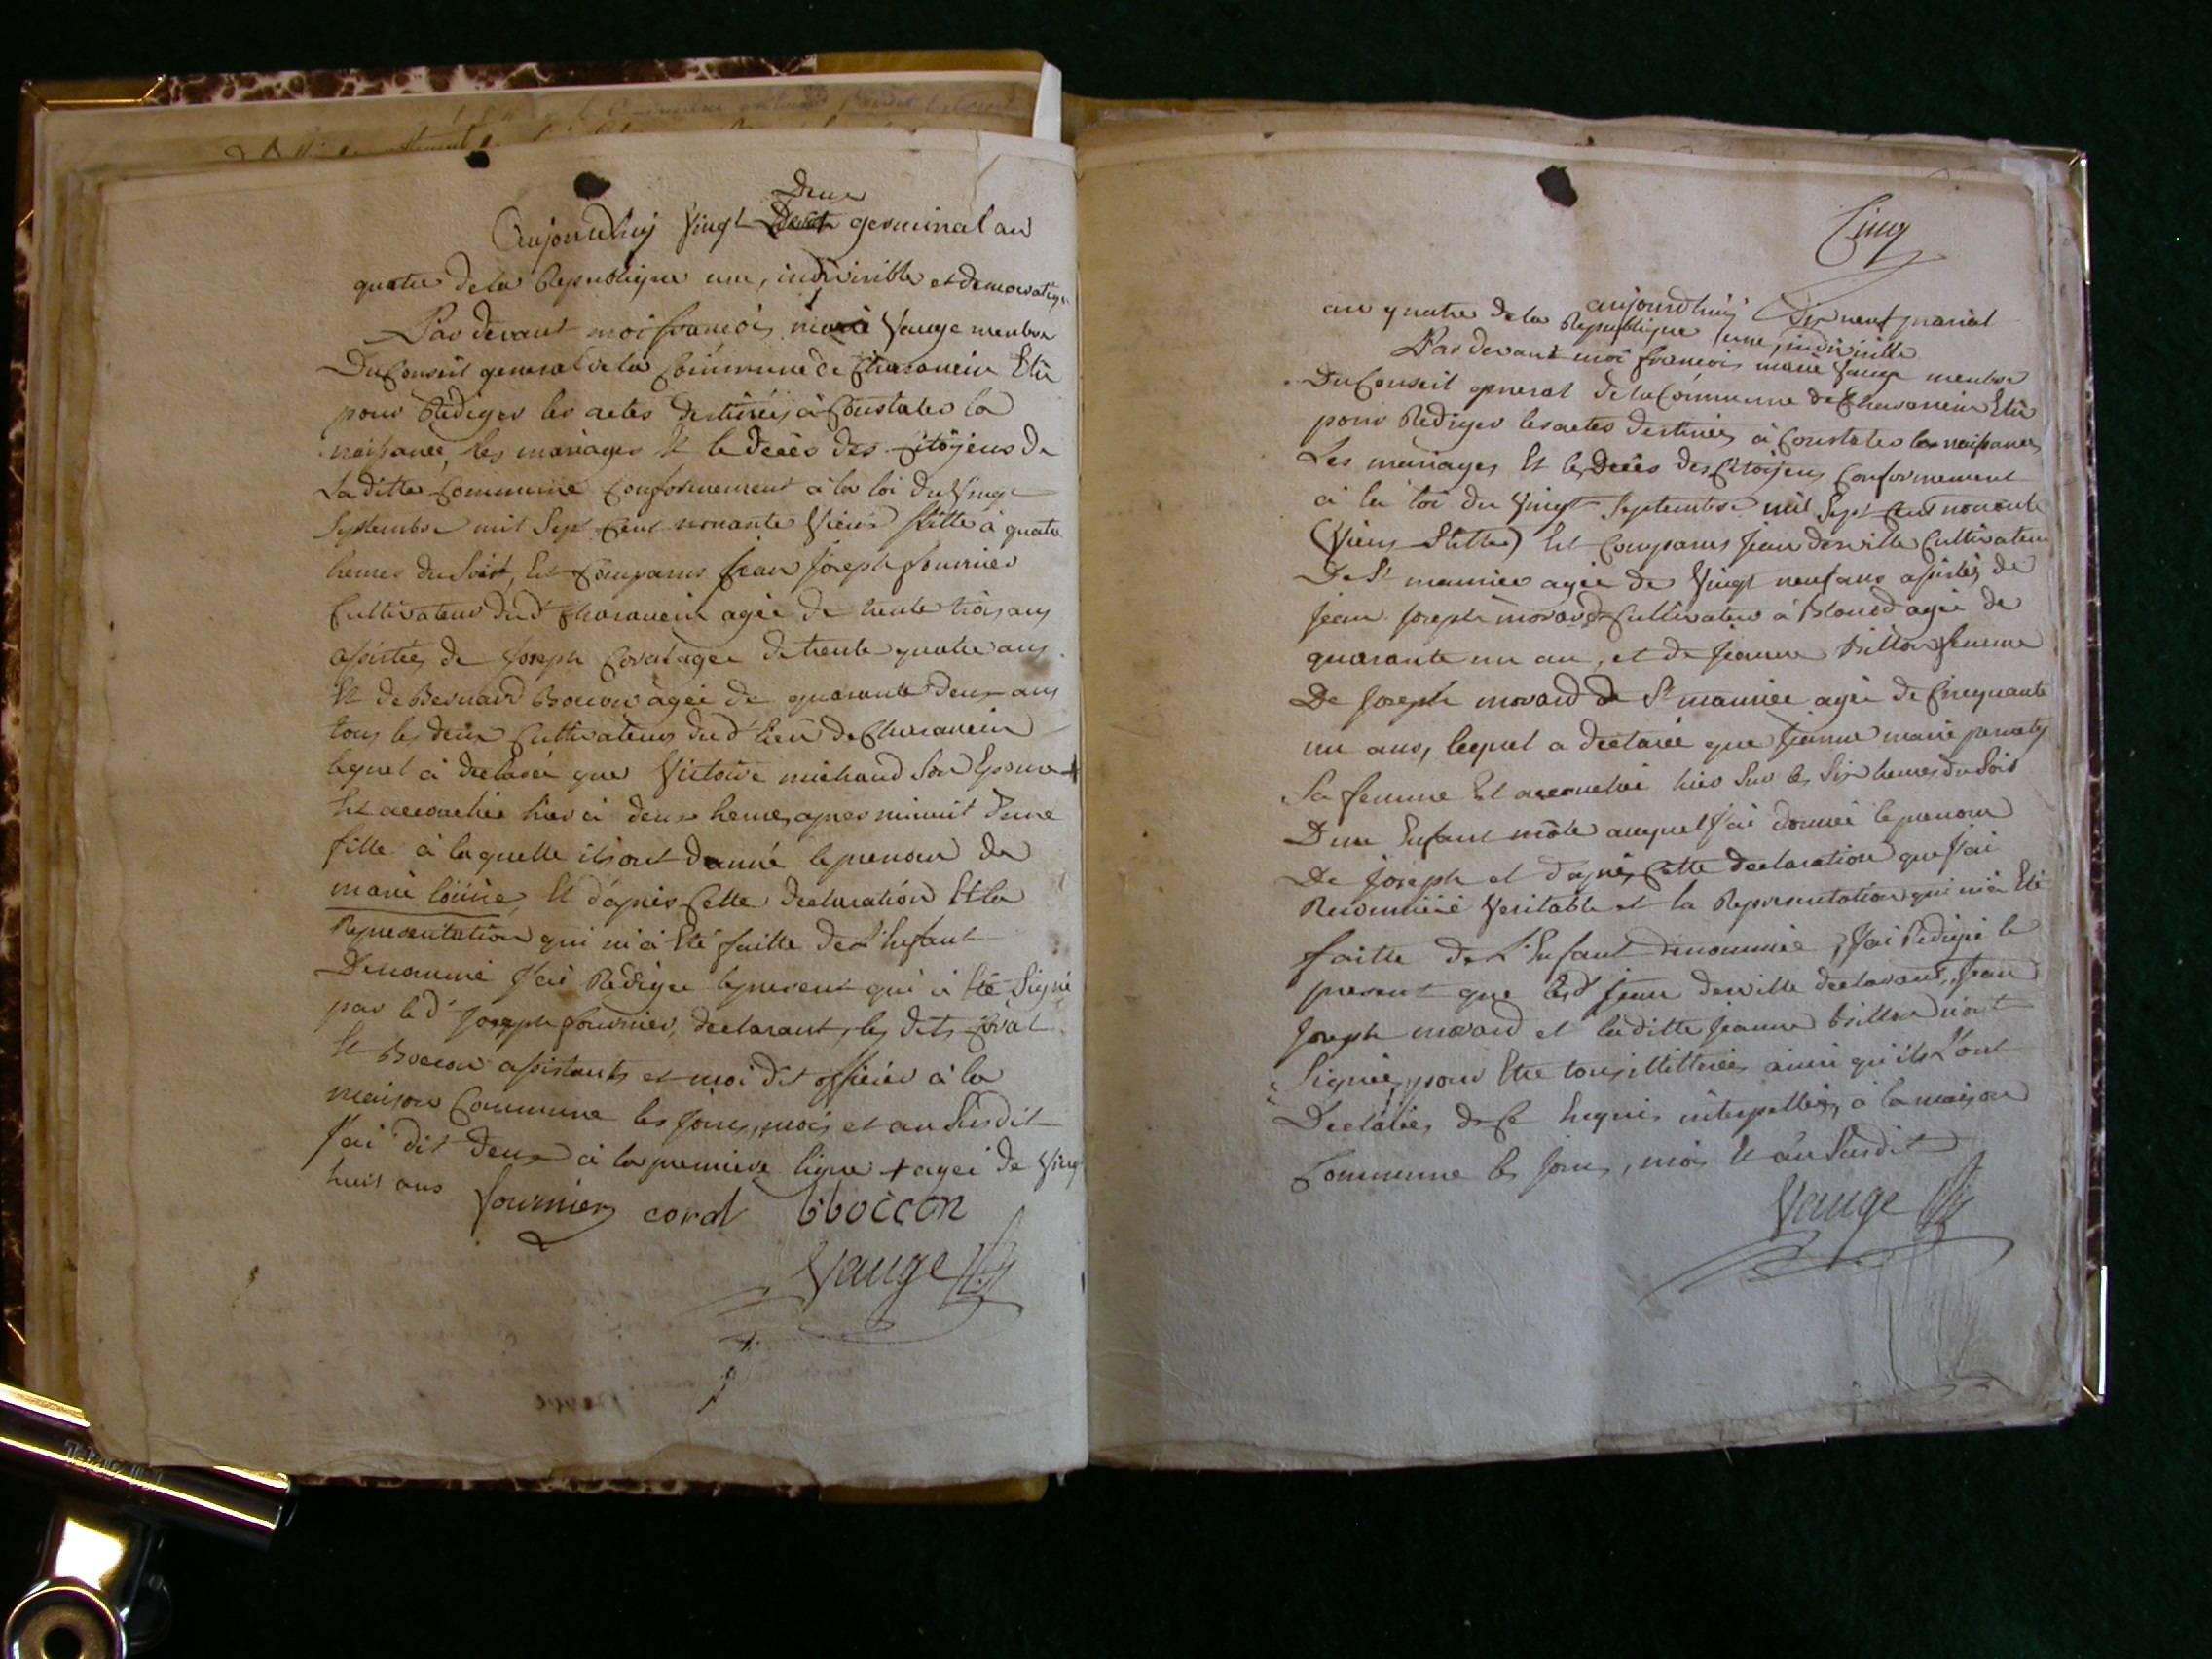 Deux
Aujourdhuy Vingt germinal an
quatre de la Republique une, indivisible et democratique
Par devant moi françois marie Vauge membre
Du Conseil general de la Commune de Charancin Elu
pour Rediger les actes destinés à Constater la
naissance, les mariages Et le Decès des Citoÿens de
La ditte Commune Conformement à la loi du Vingt
Septembre mil Sept Cent nonante Vieux Stille à quatre
heures du Soir, Est Comparus Jean Joseph fournier
Cultivateur dud Charancin agée de trente trois ans
assistée de Joseph Corat agee de trente quatre ans
Et de Bernard Bocon agée de quarante deux ans
tous les deux Cultivateurs dud lieu de Charancin
lequel à declaré que Victoire michaud Son Epouse +
Est accouchée hier à deux heures apres minuit d'une
fille à laquelle ils ont donné le prenom de
marie louise, Et d'apres Cette declaration Et la
Representation qui m'a Eté faitte de L'Enfant
Denommé J'ai Redigé le present qui à Eté Signé
par le d Joseph fournier, declarant, les dits Corat
Et Bocon assistants et moi dit officier à la
maison Commune les Jours, mois et an Susdit
J'ai dit Deux à la premiere ligne + agée de Vingt
huit ans fournier corat bboccon
Vauge
Cinq
aujourdhuy Dix neuf prairial
an quatre de la Republique une, indivisible
Par devant moi francois marie Vauge membre
Du Conseil general de la Commune de Charancin Elu
pour Rediger les actes destinés à Constater les naissances
Les mariages Et les Decès des Citoÿens Conformement
à la loi du Vingt Septembre mil Sept Cent nonante
(Vieux Stille) Est Comparus Jean derville Cultivateur
De St maurice agée de Vingt neuf ans assistés de
Jean Joseph morard Cultivateur à agée de
quarante un an, et de Jeanne Billon femme
De Joseph morard de St maurice agée de Cinquante
un ans, lequel a declaré que Jeanne marie
Sa femme Est accouchée hier Sur les Six heures du Soir
D'un Enfant mâle auquel J'ai donné le prenom
De Joseph et d'apres Cette declaration que J'ai
Reconnue Veritable et la Representation qui m'a Eté
faitte de L'Enfant denommé, J'ai Redigé le
present que led Jean derville declarant, Jean
Joseph morard et laditte Jeanne Billon n'ont
Signé, pour Etre tous illitterés ainsi qu'ils L'ont
Declarés de Ce Enquis interpellés, à la maison
Commune les Jour, mois Et an Susdit
Vauge